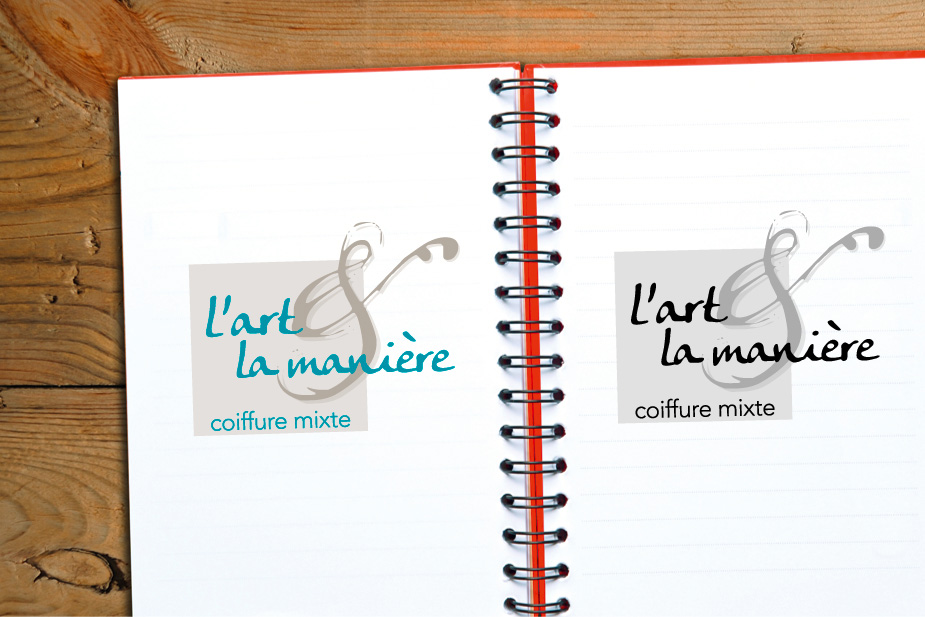 l'art &
la manière
coiffure mixte
l'art &
la manière
coiffure mixte